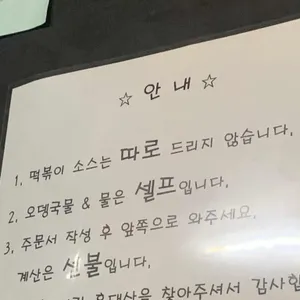 ☆ 안 내 ☆
1. 떡볶이 소스는 따로 드리지 않습니다.
2. 오뎅국물 & 물은 셀프입니다.
3. 주문서 작성 후 앞쪽으로 와주세요.
계산은 선불입니다.
찾아주셔서 감사합